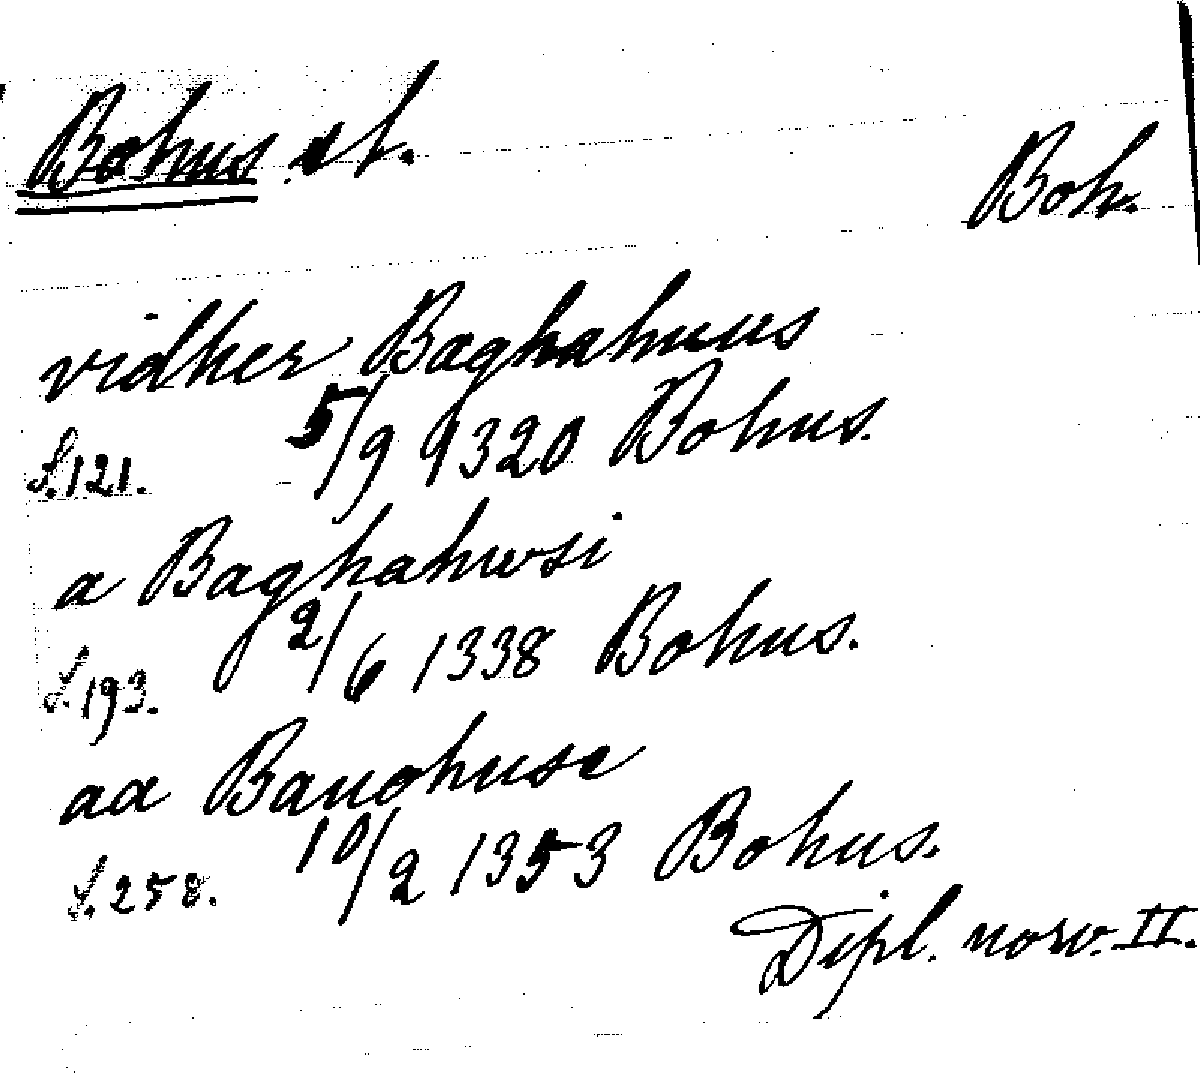 Bohus sl.
Boh.
vidher Baghahuus
S. 121. 5/9 1320 Bohus.
a Baghahwsi
S. 193. 2/6 1338 Bohus.
aa Bauohuse
S. 258. 10/2 1353 Bohus.
Dipl. norv. II.